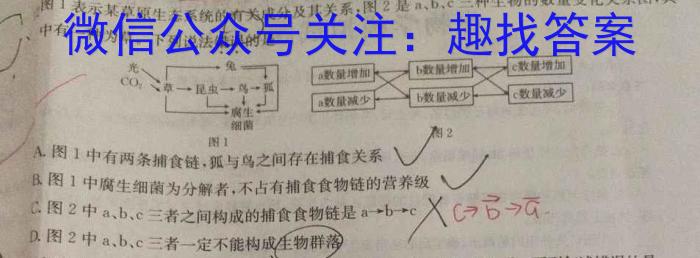 图1表示某草原生态系统的有关成分及其关系,图2是a、b、c三种生物的数量变化关系图,其
微信公众号关注：趣找答案
中有
光
CO₂
草
兔
昆虫
鸟
狐
腐生
细菌
图1
a数量增加
b数量增加
c数量增加
a数量减少
b数量减少
c数量减少
图2
A. 图1中有两条捕食链,狐与鸟之间存在捕食关系
B. 图1中腐生细菌为分解者,不占有捕食食物链的营养级
C. 图2中a、b、c三者之间构成的捕食食物链是a→b→c
c→b→a
D. 图2中a、b、c三者一定不能构成生物群落